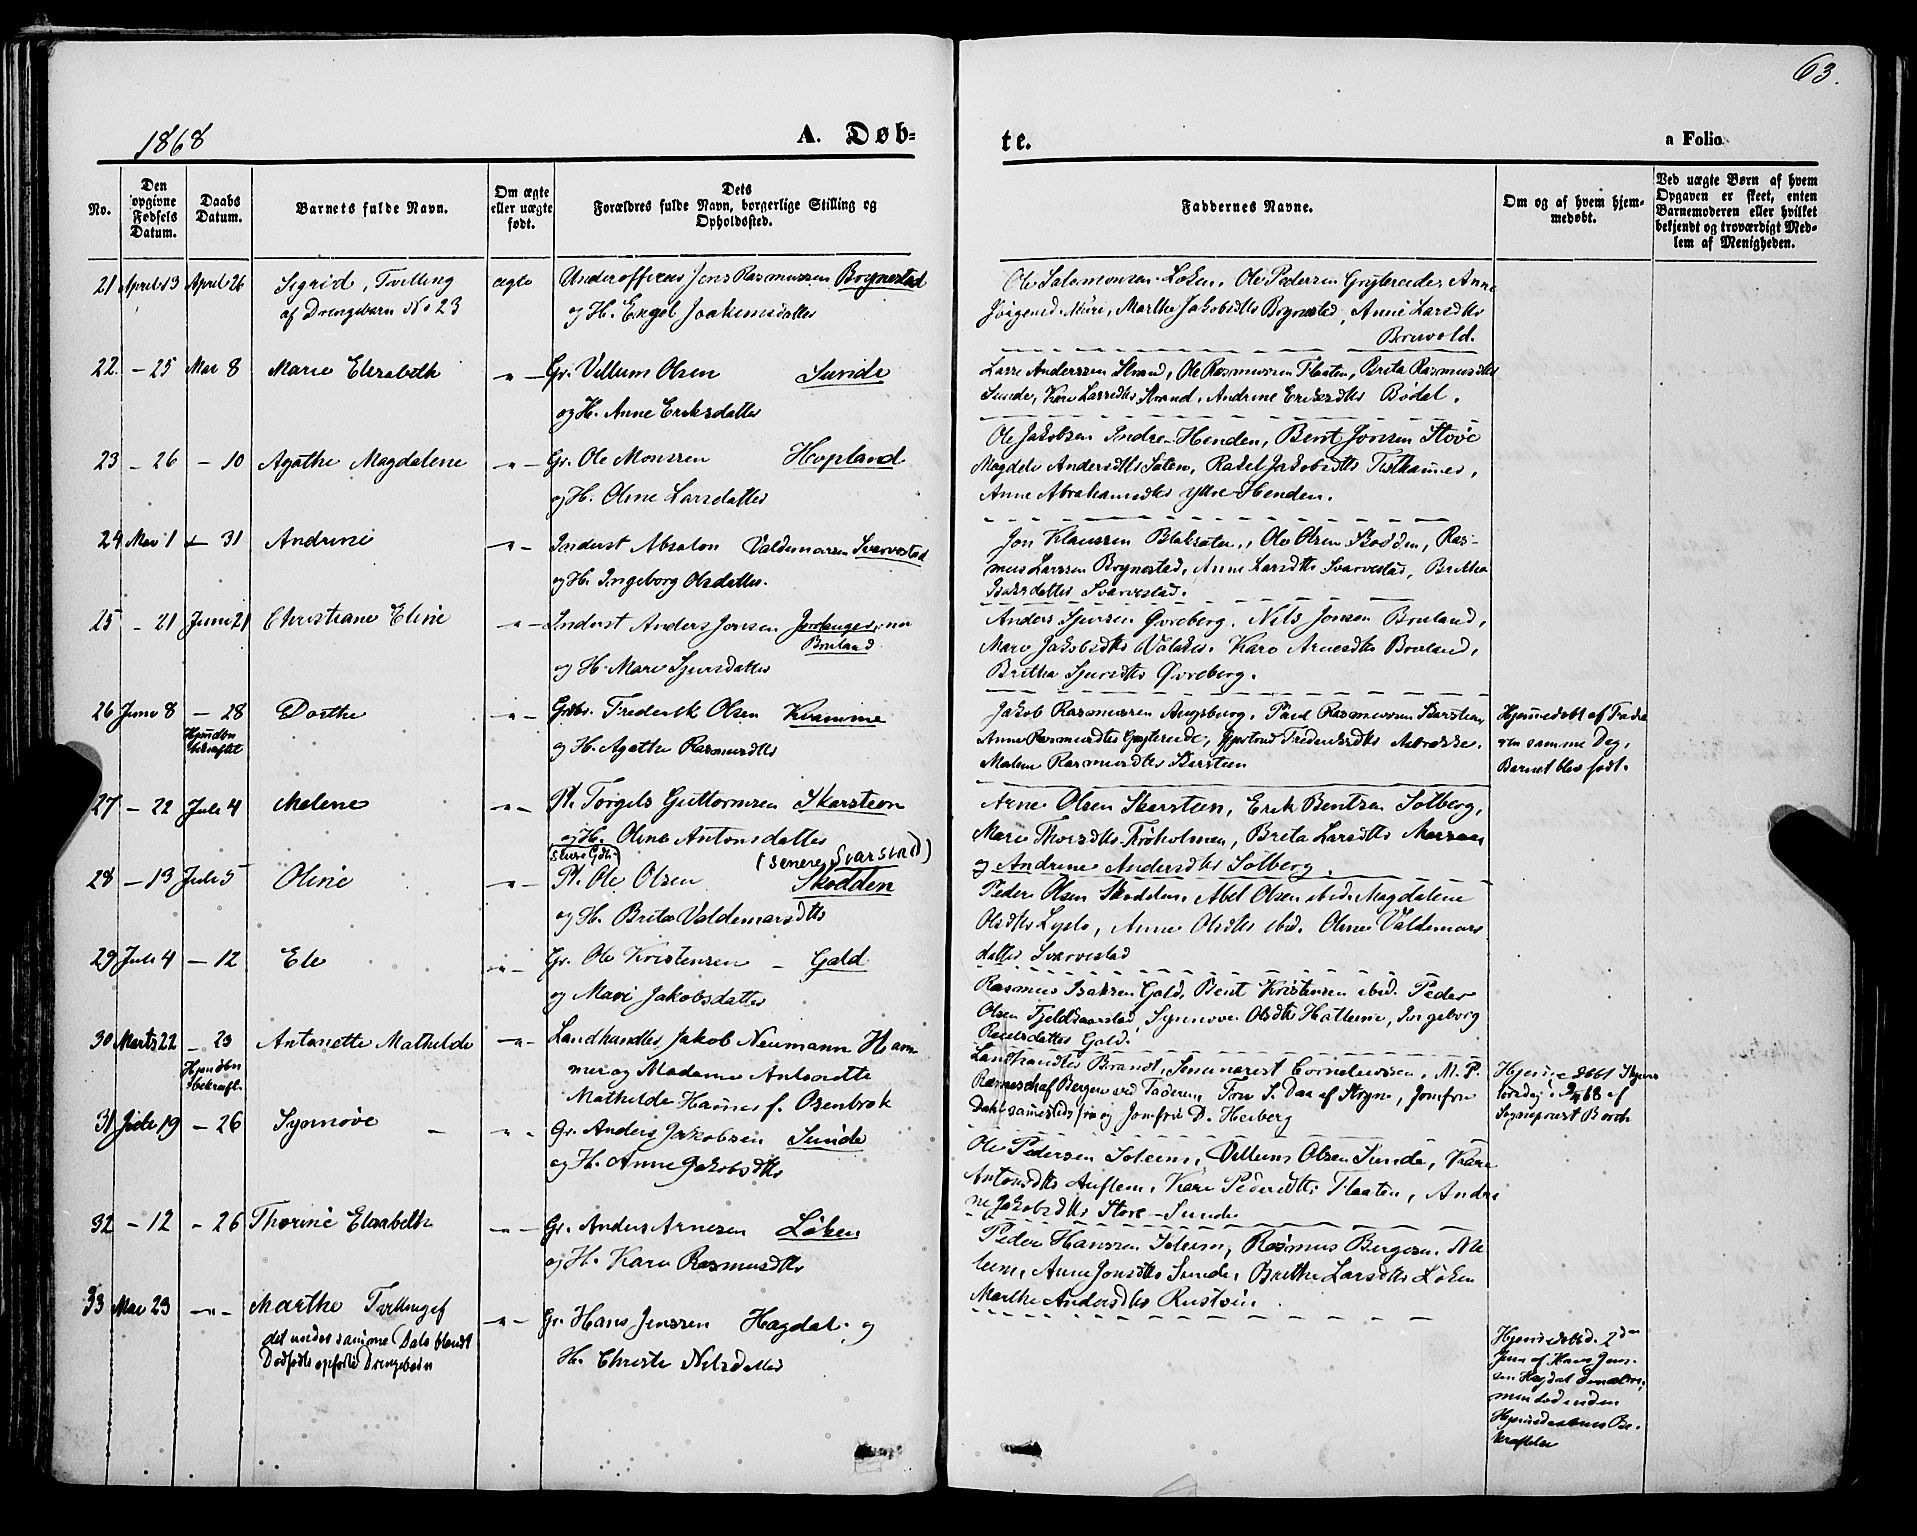 63.
1868
A. Døb-
te.
a Folio
No.
Den opgivne Fødsels Datum.
Daabs Datum.
Barnets fulde Navn.
Om ægte eller uægte født.
Dets Forældres fulde Navn, borgerlige Stilling og Opholdssted.
Faddernes Navne.
Om og af hvem hjemmedøbt.
Ved uægte Børn af hvem Opgaven er skeet, enten Barnemoderen eller hvilket bekjendt og troværdigt Medlem af Menigheden.
21 April 13 April 26 Sigrid, Tvilling ægte Underofficeer Jens Rasmussen Brynestad
af Drengebarn No 23 og H. Engel Joakimsdatter
Ole Salomonsen Løken, Ole Pedersen Grytereide, Anne
Marthe Jakobsdtr Brynestad, Anne Larsdtr
Bruvold.
22. - 25 Mai 8 Marie Elisabeth - " - Gr. Villum Olsen Sunde
og H. Anne Eriksdatter
Lasse Anderssen Strand, Ole Rasmussen Flaaten, Brita Rasmusdtr
Sunde, Kari Larsdtr Strand, Andrine Eriksdtr Bødal.
23 - 26 - 10 Agathe Magdalene - " - Gr. Ole Monssen Hopland
og H. Oline Larsdatter
Ole Jakobsen Indre-Henden, Bent Jonsen Støve
Magdele Andersdtr Sæten, Rakel Jakobsdtr
Anne Abrahamsdtr Ytre Henden.
24 Mai 1 - 31 Andrine - " - Inderst Absalon Valdemarsen Svarvestad
og H. Ingeborg Olsdatter.
Jon Klaussen Blaksæter, Ole Olsen Skodden, Ras-
mus Larssen Brynestad, Anne Larsdtr Svarvestad, Brithe
Isaksdatter Svarvestad.
25 - 21 Juni 21 Christiane Eline - " - Inderst Anders Jonsen
Bruland
og H. Mari Sjursdatter
Anders Sjursen Øvreberg, Nils Jonsen Bruland,
Mari Jakobsdtr Kari Arnesdtr Bruland,
Britha Sjursdtr Øvreberg.
26 Juni 8 - 28 Dorthe - " - Frederik Olsen Kvamme
Hjemdøb
bekræftet
og H. Agathe Rasmusdtr
Jakob Rasmussen Augsburg, Paul Rasmussen Skarsteen
Anne Rasmusdtr Gryterude, Frederiksdtr
Malene Rasmusdtr Skarsteen
Hjemmedøbt af Fade-
ren samme Dag,
Barnet blev født.
27 - 22 Juli 4 Malene - " - Pl. Torgels Guttormsen Skarsteen
og H. Oline Antonsdatter
Arne Olsen Skarsteen, Erik Bentsen Solberg,
Marie Thorsdtr Frøholmen, Brita Larsdtr
og Andrine Andersdtr Solberg.
(senere Svarstad)
28 - 13 Juli 5 Oline - " - Pl. Ole Olsen Skodden
og H. Brite Valdemarsdtr
Peder Olsen Skodden, Abel Olsen ibid. Magdalene
Olsdtr Anne Olsdtr ibid. Oline Valdemars
datter Svarvestad
29 Juli 4 - 12 Ele - " - Gr. Ole Kristensen - Gald
og Mari Jakobsdatter
Rasmus Isaksen Gald, Bent Kristensen ibid. Peder
Olsen Synnøve Olsdtr Ingeborg
Gald.
30 Marts 22 - 23 Antonette Mathilde - " - Landhandler Jakob Neumann Ham-
Hjemdøb
bekræft.
mer og Madame
Mathilde Hammer f. Osenbrok
Landhandler Brandt, Seminarist Corneliussen, M. P.
af Bergen ved Faderen, Fru S. Daa af Stryn, Jomfru
og Jomfru D. Heiberg
Hjemmedøbt
af
Sogneprest
31 Juli 19 - 26 Synnøve - " - Gr. Anders Jakobsen Sunde
og H. Anne Jakobsdtr
Ole Pedersen Solem, Villum Olsen Sunde, Kari
Antonsdtr Auflem, Kari Pedersdtr Flaaten, Andri
ne Jakobsdtr Store-Sunde
32 - 12 - 26 Thorine Elisabeth - " - Gr. Anders Arnesen Løken
og H. Kari Rasmusdtr
Peder Hanssen Solem, Rasmus
Anne Jonsdtr Sunde, Brithe Larsdtr Løken
Marthe Andersdtr Rustøen
33 Mai 23 - " - Marthe Tvilling af - " - Gr. Hans Jenssen Hagdal og
det under samme Dato blandt
Dødfødte opførte Drengebarn
H. Christi Nilsdatter
Hjemmedøbt 2den
Juni af Hans Jens-
sen Hagdal
men død inden
Hjemmedaabens Be-
kræftelse